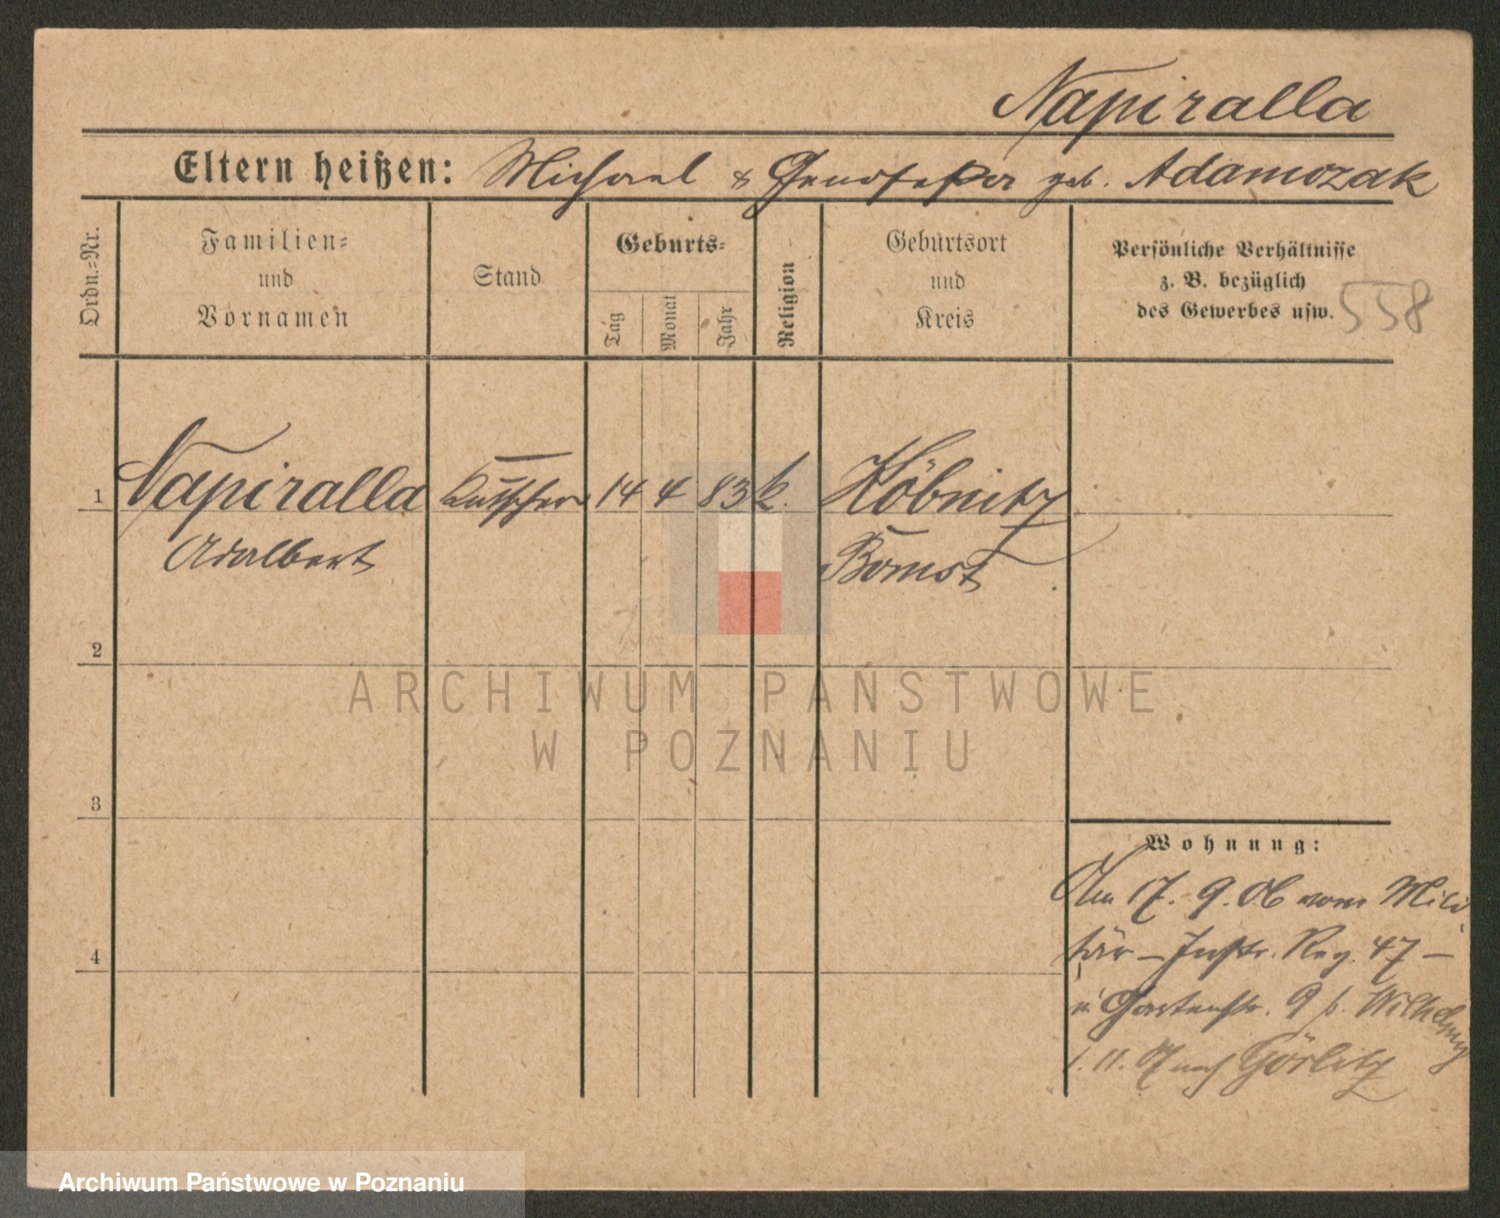 Napiralla
Eltern heißen: Michael & geb. Adamczak
Ordn.=Nr.
Familien=
und
Vornamen
Stand
Geburts=
Tag
Monat
Jahr
Religion
Geburtsort
und
Kreis
Persönliche Verhältnisse
z. B. bezüglich
des Gewerbes usw.
558
1 Napiralla Kutscher 14 4 83 k. Köbnitz
Adalbert Bomst
2
3
4
Wohnung:
Am 17. 9. 06 vom Mili
tär – Inftr. Reg. 47 –
in Gartenstr. 9 b.
1. 11. 07 nach Görlitz
ARCHIWUM PAŃSTWOWE
W POZNANIU
Archiwum Państwowe w Poznaniu